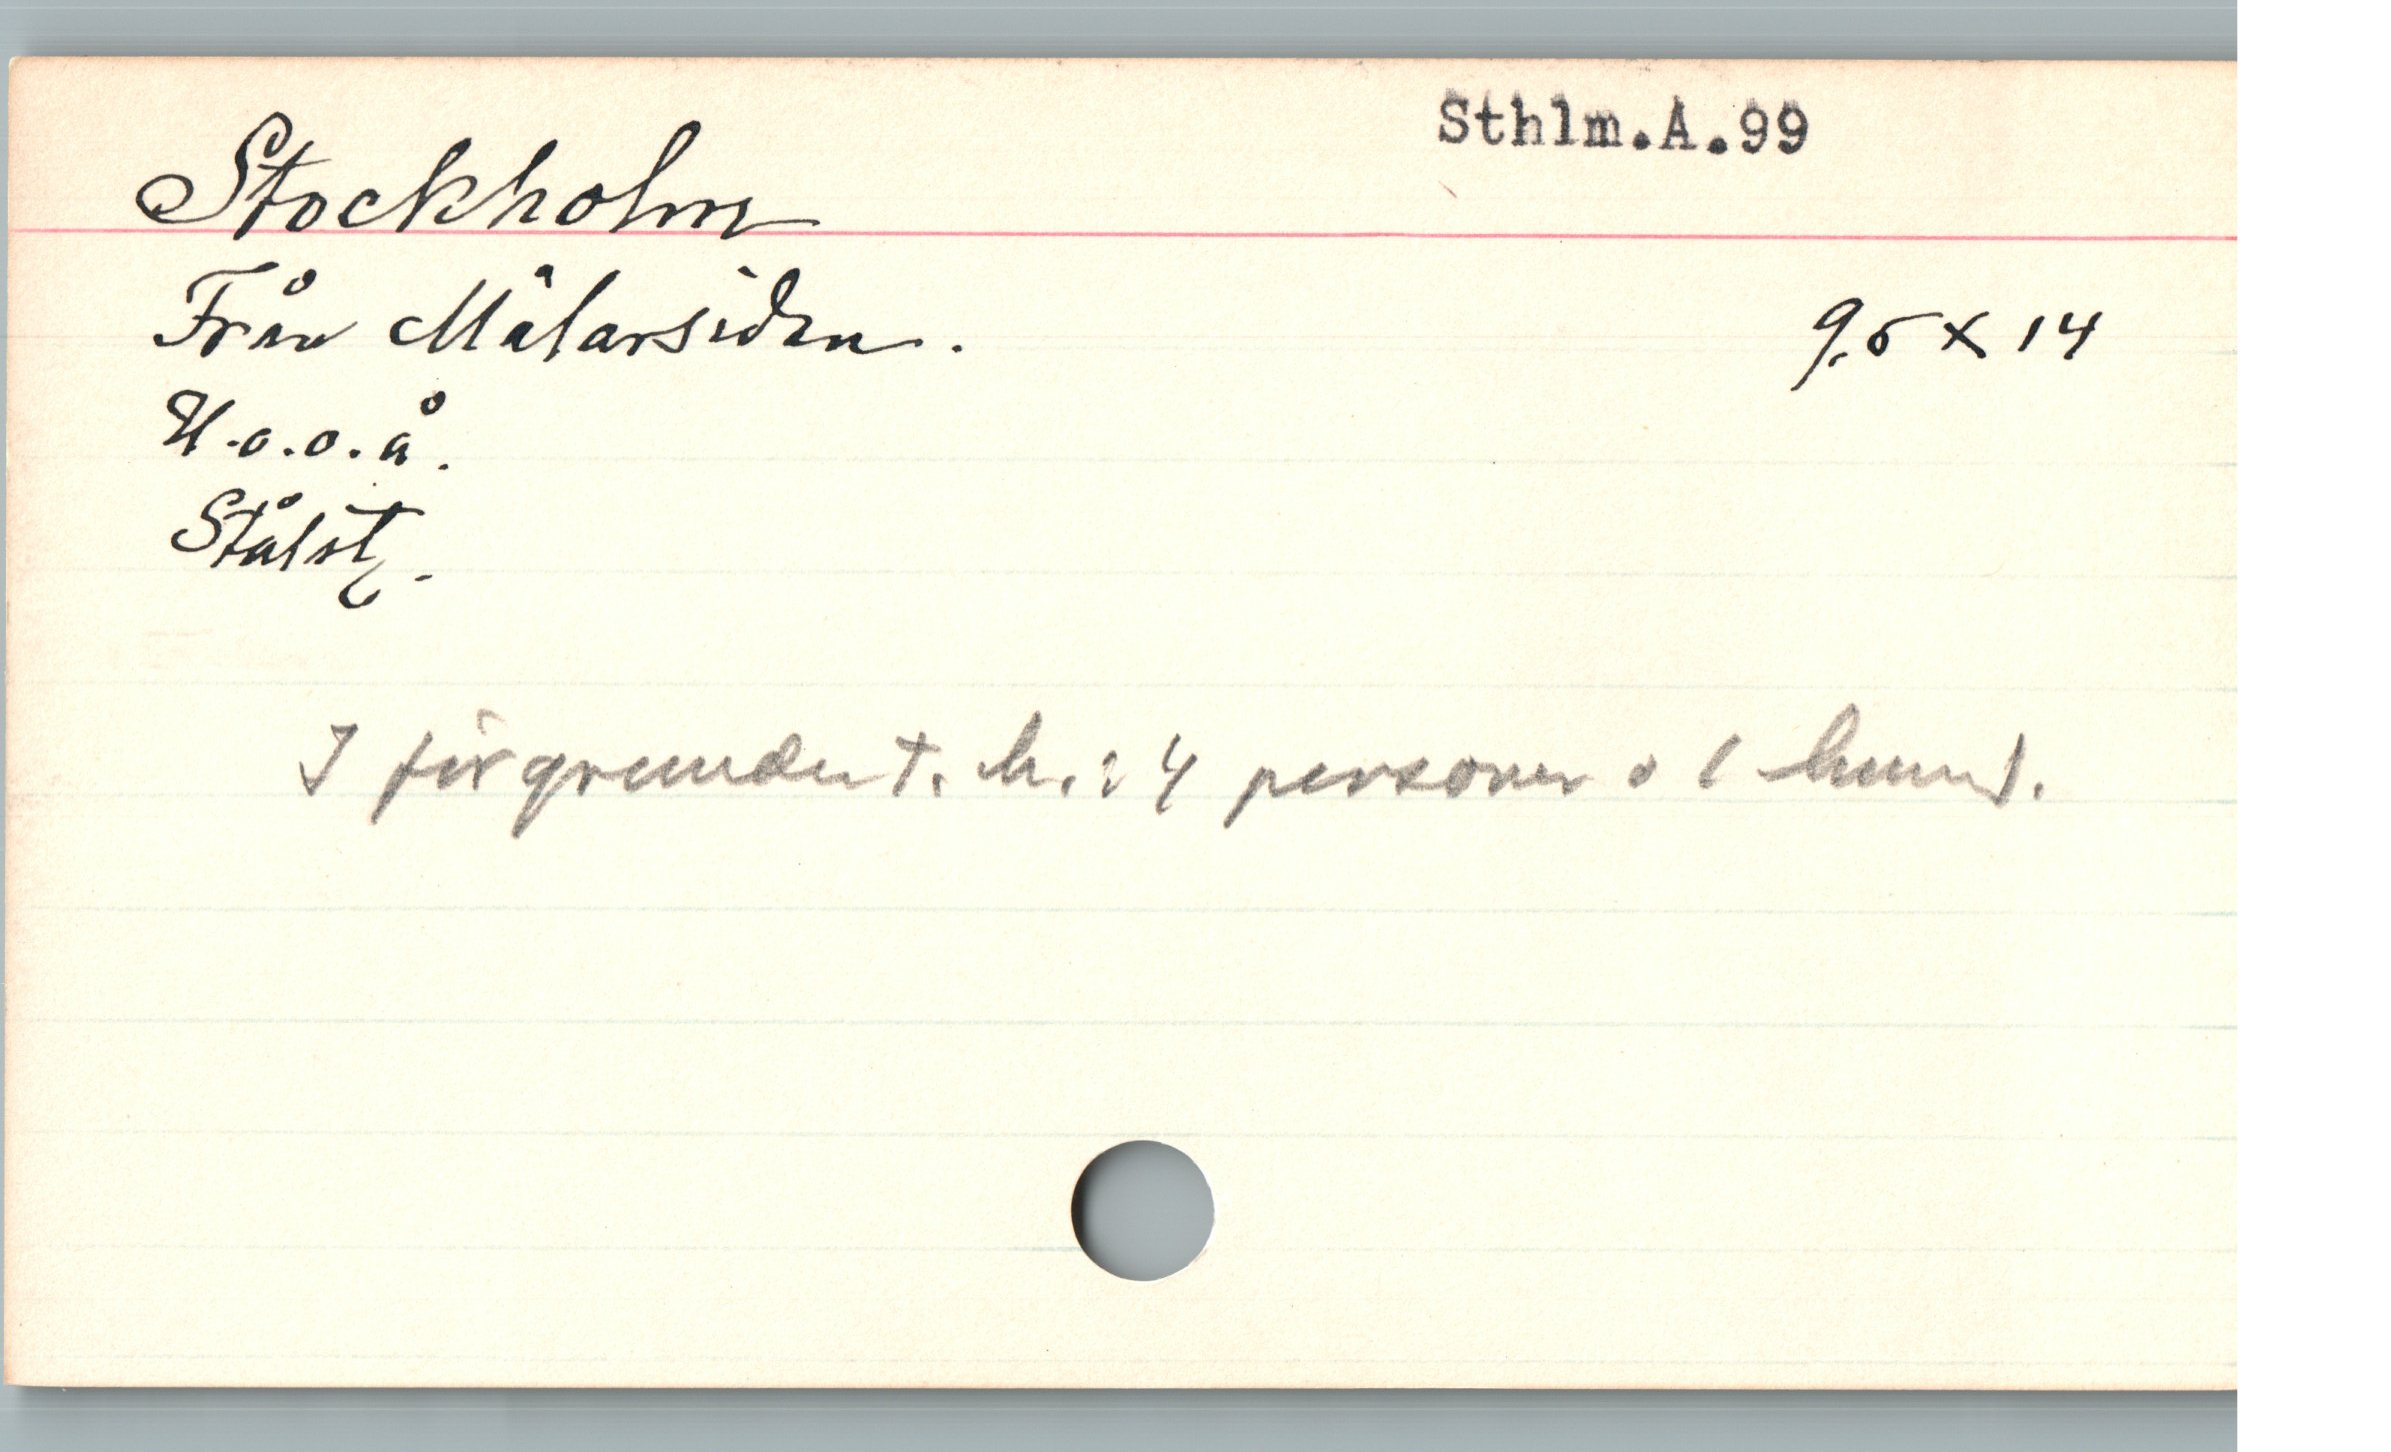 Sthlm.A.99
Stockholm
Från Mälarsiden. 9,5 x 14
U.o.o.å.
Stålst.
I förgrunden t. h.: 4 personer o 1 hund.